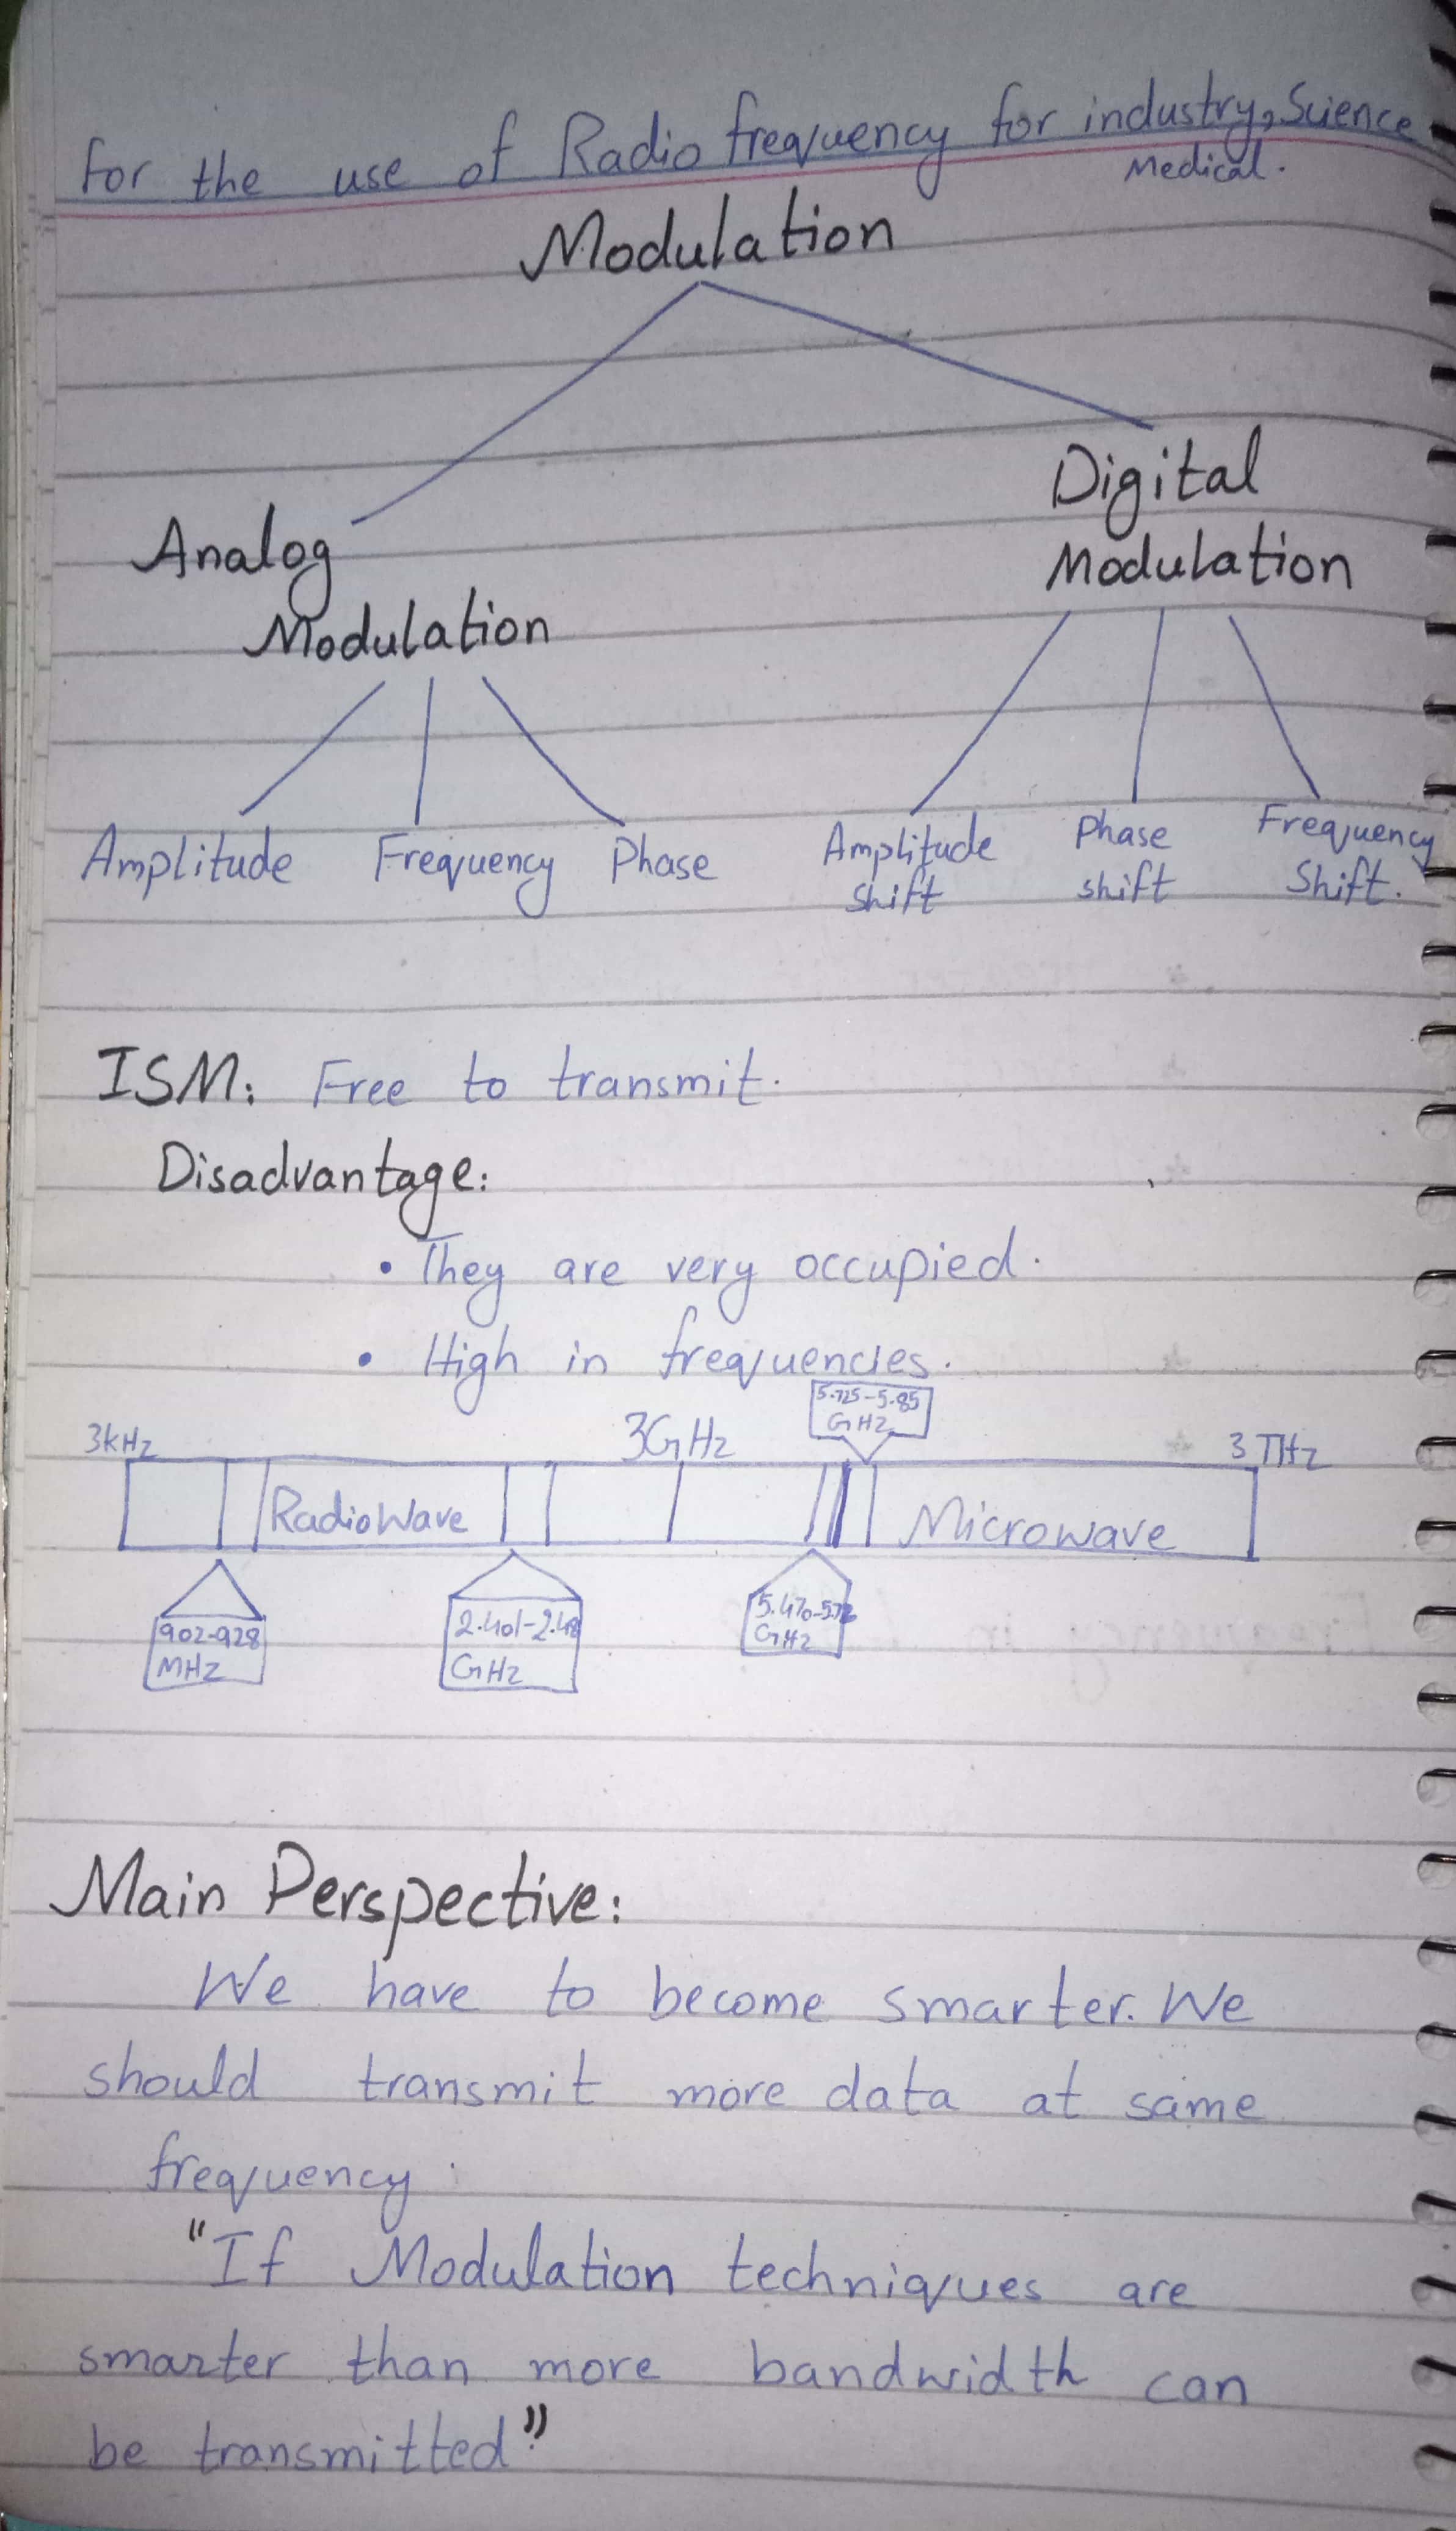 for the use of Radio frequency for industry, Science
Medical.
Modulation
Analog
Modulation
Digital
Modulation
Amplitude Frequency Phase
Amplitude
shift
Phase
shift
Frequency
Shift.
ISM: Free to transmit.
Disadvantage:
• They are very occupied.
• High in frequencies.
5.725-5.85
GHz
3kHz 3GHz 3THz
RadioWave Microwave
902-928
MHz
2.401-2.48
GHz
GHz
Main Perspective:
We have to become smarter. We
should transmit more data at same
frequency.
"If Modulation techniques are
smarter than more bandwidth can
be transmitted"